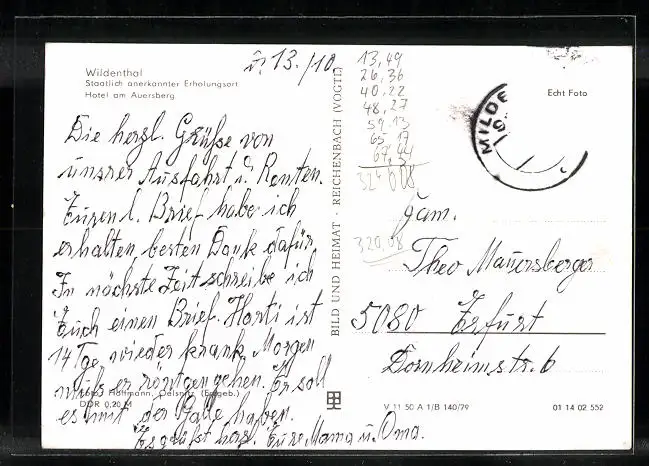 Wildenthal
Staatlich anerkannter Erholungsort
Hotel am Auersberg
13./10.
Die herzl. Grüße von
unsrer Ausfahrt u. Renten.
Euren l. Brief habe ich
erhalten, besten Dank dafür.
In nächste Zeit schreibe ich
Euch einen Brief. Horti ist
14 Tge wieder krank, Morgen
muß er röntgen gehen. Er soll
es mit der Galle haben.
Es grüßt herzl. Eure Mama u. Oma.
Foto: Hoffmann, Oelsnitz (Erzgeb.)
DDR 0,20 M
BILD UND HEIMAT · REICHENBACH (VOGTL)
13,49
26,36
40,22
48,27
59,13
65,17
67,44
320,08
MILDE
Echt Foto
Fam.
Theo Mauersberger
5080 Erfurt
Dornheimstr. 6
V 11 50 A 1/B 140/79
01 14 02 552